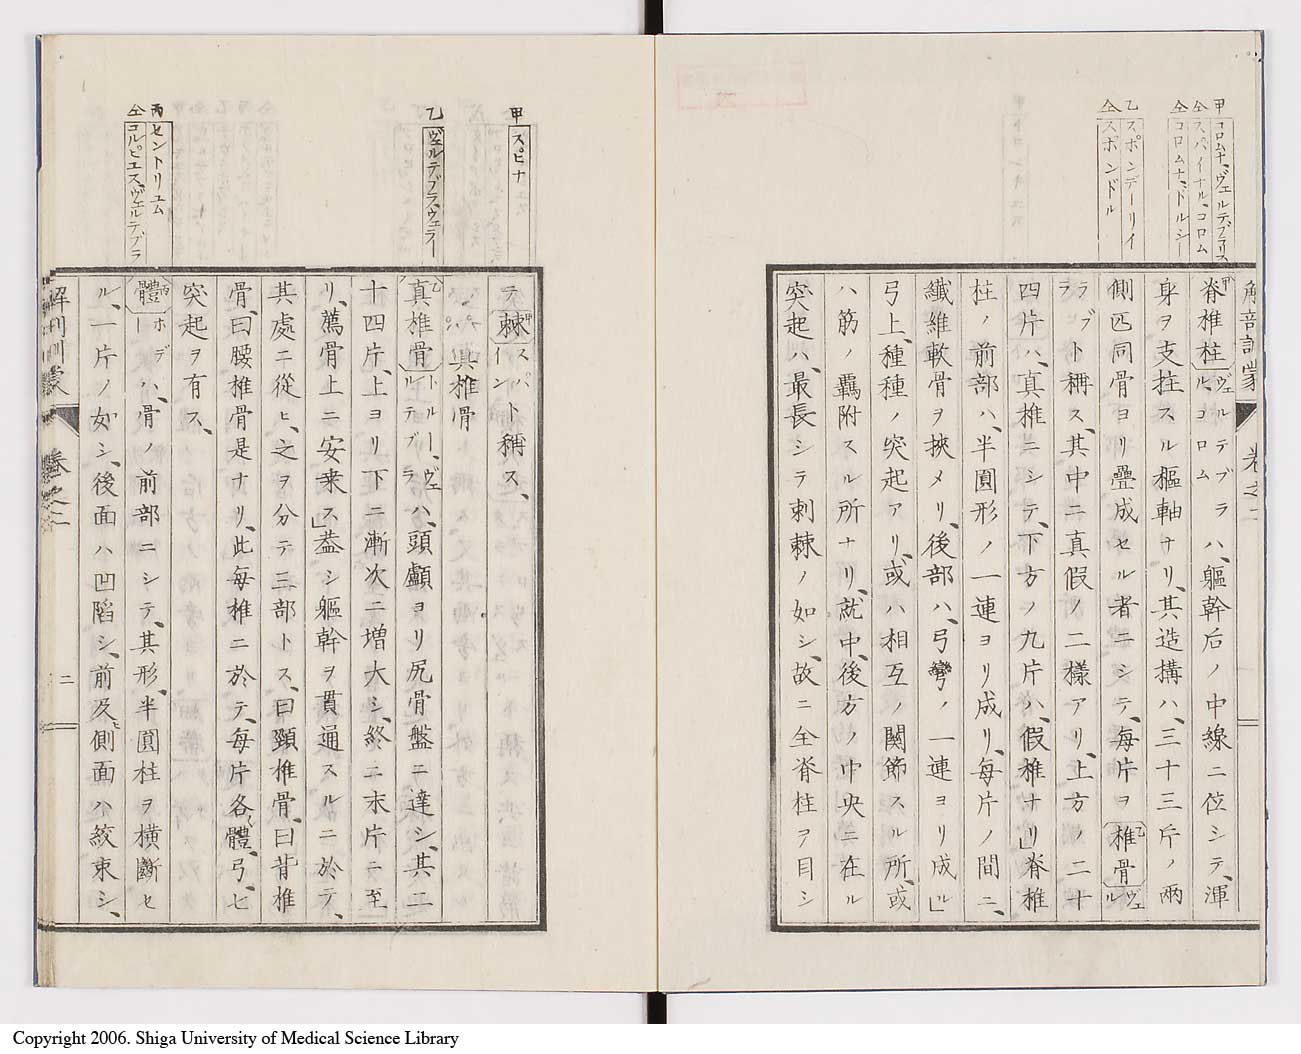 甲 コロムナ、ヴェルテ、ブラリス
仝 スパイナル、コロム
仝 コロムナ、ドルシ
乙 スポンデーリイ
仝 スポンドル
解剖訓蒙 卷之二
脊椎柱ヴェルテブラルコロムハ、軀幹后ノ中線ニ位シテ、渾
身ヲ支拄スル樞軸ナリ、其造搆ハ、三十三斤ノ兩
側匹同骨ヨリ疊成セル者ニシテ、每片ヲ椎骨ヴェル
テブラト稱ス、其中ニ真假ノ二樣アリ、上方ノ二十
四片ハ、真椎ニシテ、下方ノ九片ハ、假椎ナリ」脊椎
柱ノ前部ハ、半圓形ノ一連ヨリ成リ、每片ノ間ニ、
纎維軟骨ヲ挾メリ、後部ハ、弓彎ノ一連ヨリ成ル」
弓上、種種ノ突起アリ、或ハ相互ノ関節スル所、或
ハ筋ノ羈附スル所ナリ、就中、後方ノ中央ニ在ル
突起ハ、最長シテ刺棘ノ如シ、故ニ全脊柱ヲ目シ
甲 スピナ
乙 ヴェルテ、ブラ、ヴェライ
丙 セントリユム
仝 コルピュス、ヴェルテ、ブラ
テ棘スパイント稱ス、
真椎骨
真椎骨トルー、ヴェルテブラハ、頭顱ヨリ尻骨盤ニ達シ、其二
十四片、上ヨリ下ニ漸次ニ増大シ、終ニ末片ニ至
リ、薦骨上ニ安乗ス」葢シ軀幹ヲ貫通スルニ於テ、
其處ニ從ヒ、之ヲ分テ三部トス、曰頸椎骨、曰背椎
骨、曰腰椎骨是ナリ、此每椎ニ於テ、每片各體、弓、ヒ
突起ヲ有ス、
體ボデーハ、骨ノ前部ニシテ、其形、半圓柱ヲ橫斷セ
ル、一片ノ如シ、後面ハ凹陷シ、前及ヒ側面ハ絞束シ、
解剖訓蒙 卷之二 二
Copyright 2006. Shiga University of Medical Science Library